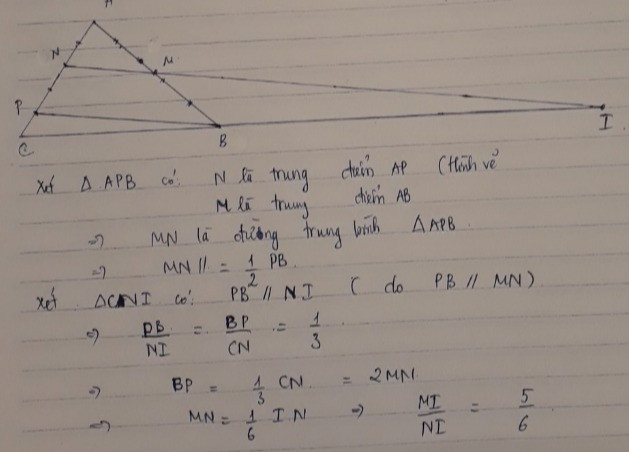 A
N
M
P
C
B
I
Xét Δ APB có: N là trung điểm AP (Hình vẽ
M là trung điểm AB
=> MN là đường trung bình ΔAPB
=> MN // = 1/2 PB.
Xét ΔCNI có: PB // NI ( do PB // MN)
=> PB/NI = BP/CN = 1/3
=> BP = 1/3 CN = 2MN
=> MN = 1/6 IN => MI/NI = 5/6